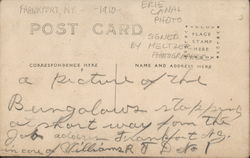 FRANKFORT, N.Y. -1910-
ERIE CANAL PHOTO
SIGNED BY MELTZER PHOTOGRAPHER
POST CARD
PLACE STAMP HERE
CORRESPONDENCE HERE
NAME AND ADDRESS HERE
a picture of the
Bungalows stopping
a short way from the
Job address Frankfort N.Y.
in care of Williams R F D No 1